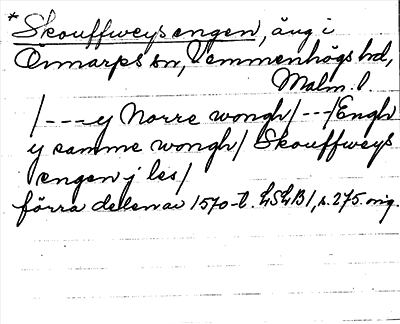 * Skouffweysengen, äng i
Önnarps sn, Vemmenhögs hd,
Malm. l.
/---ej Norre wongh/---/Engh
ij samme wongh/ Skouffweys
engen j les/
förra delen av 1570-t. LSLB1, s. 275. orig.